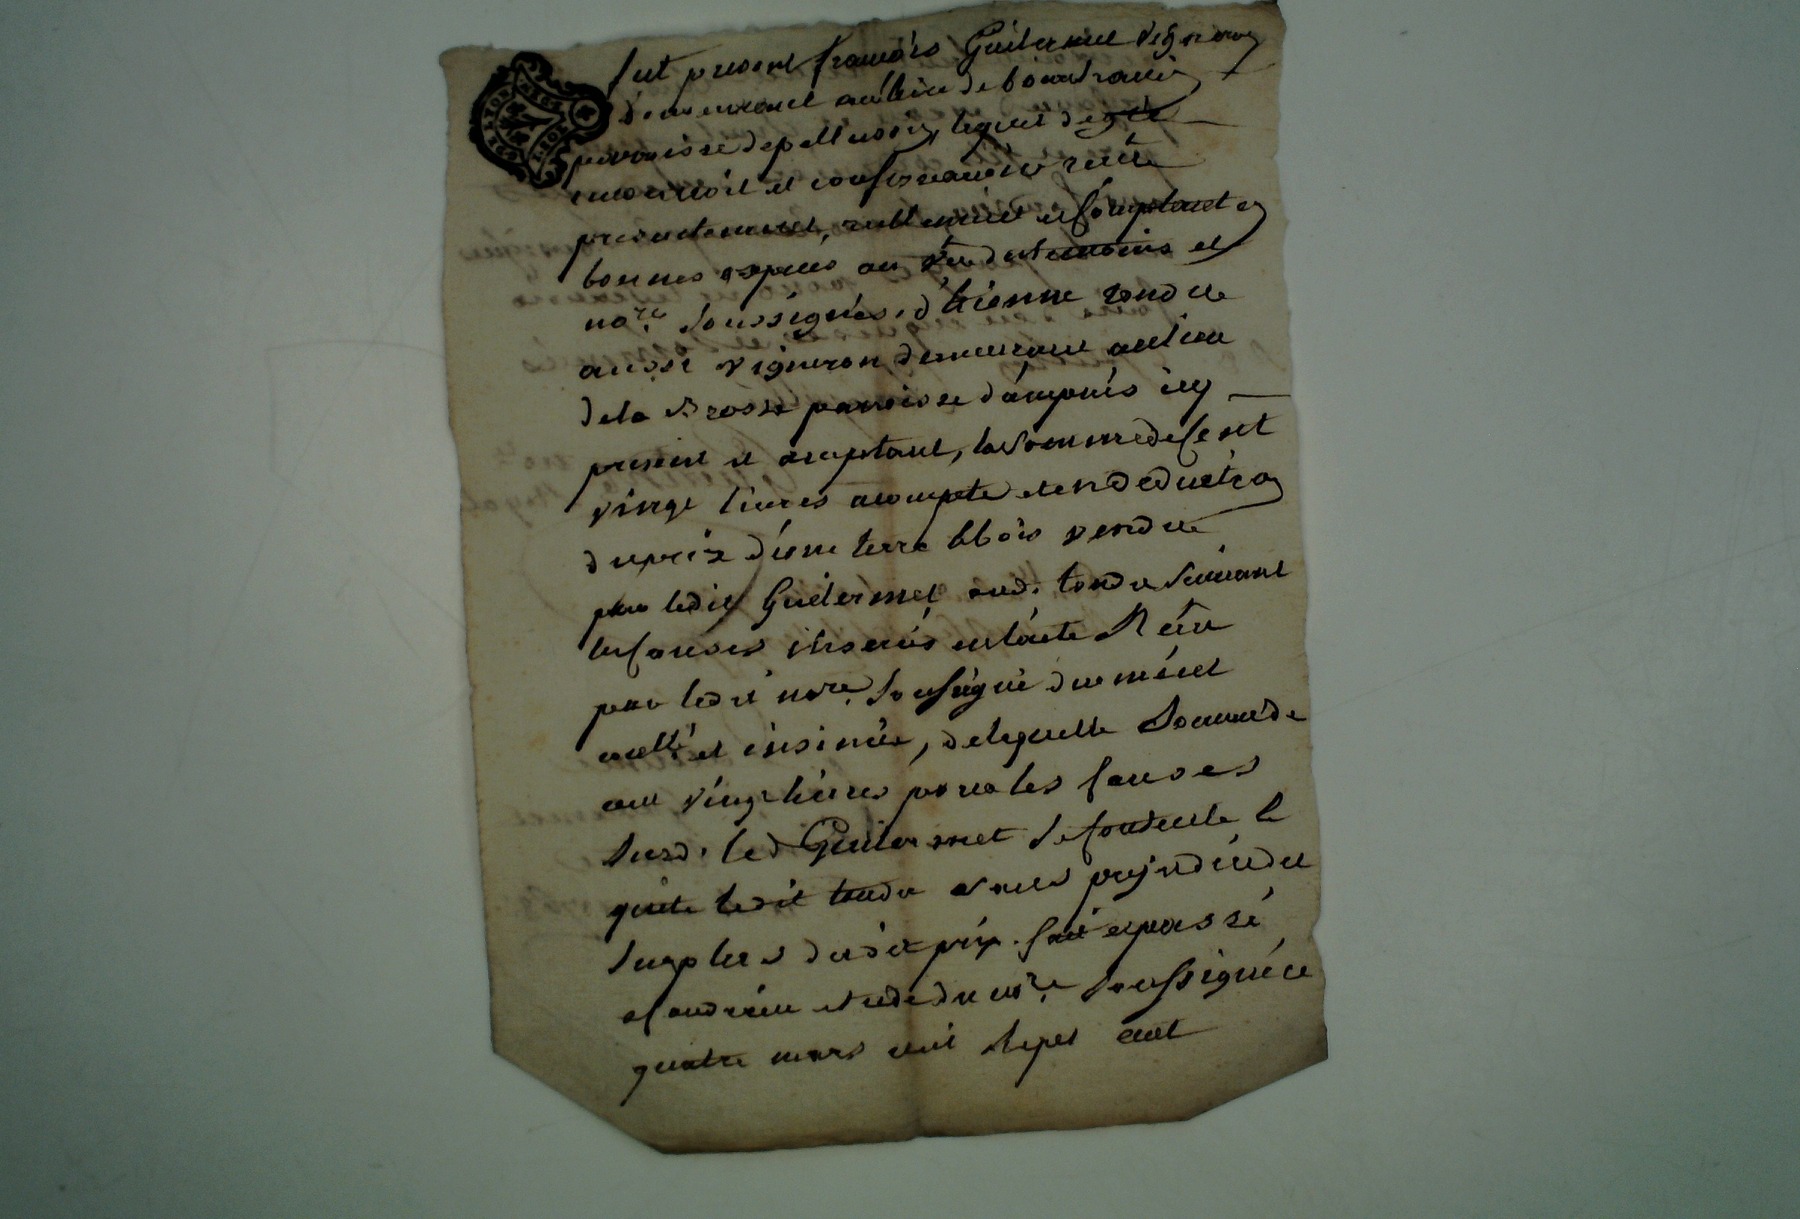 fut present francois Guilermet vigneron
demeurant au lieu de
parroisse de lequel de gré
a reconnoit et confesse avoir recu
presentement, reellement et comptant en
bonnes especes au veu des temoins et
nore. soussignés, d'Etienne tondu
aussi vigneron demeurant au lieu
de la Brosse parroisse d'ampuis icy
present et acceptant, la somme de cent
vingt livres a compte et en deduction
du prix d'une terre et bois vendue
par ledit Guilermet aud. tondu suivant
les causes inserés en l'acte Recu
par ledit nore. soussigné duement
collé. et insinué, de laquelle somme de
cent vingt livres pour les causes
susd. led Guilermet se contente &
quitte ledit tondu sans prejudice du
surplus dudit prix. fait et passé
a condrieu etude du nore. soussigné ce
quatre mars mil sept cent